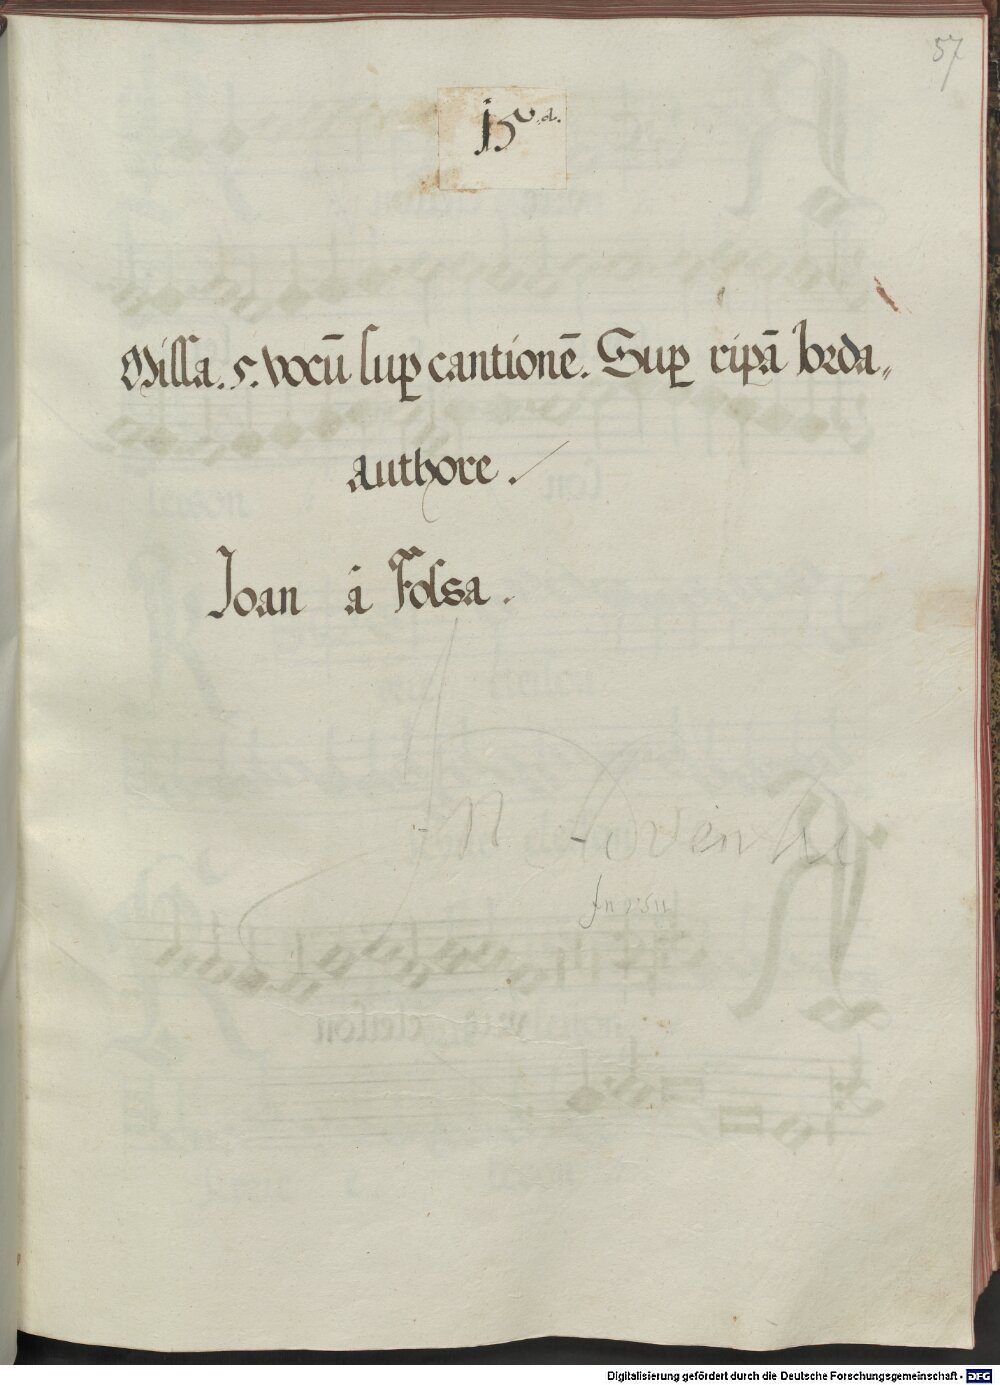 57
Missa. 5. vocū sup cantionē. Sup ripā Iorda„
authore.
Joan â Fossa.
In Adventu
Digitalisierung gefördert durch die Deutsche Forschungsgemeinschaft - DFG